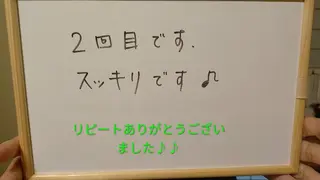 2回目です.
スッキリです♪
リピートありがとうござい
ました♪♪